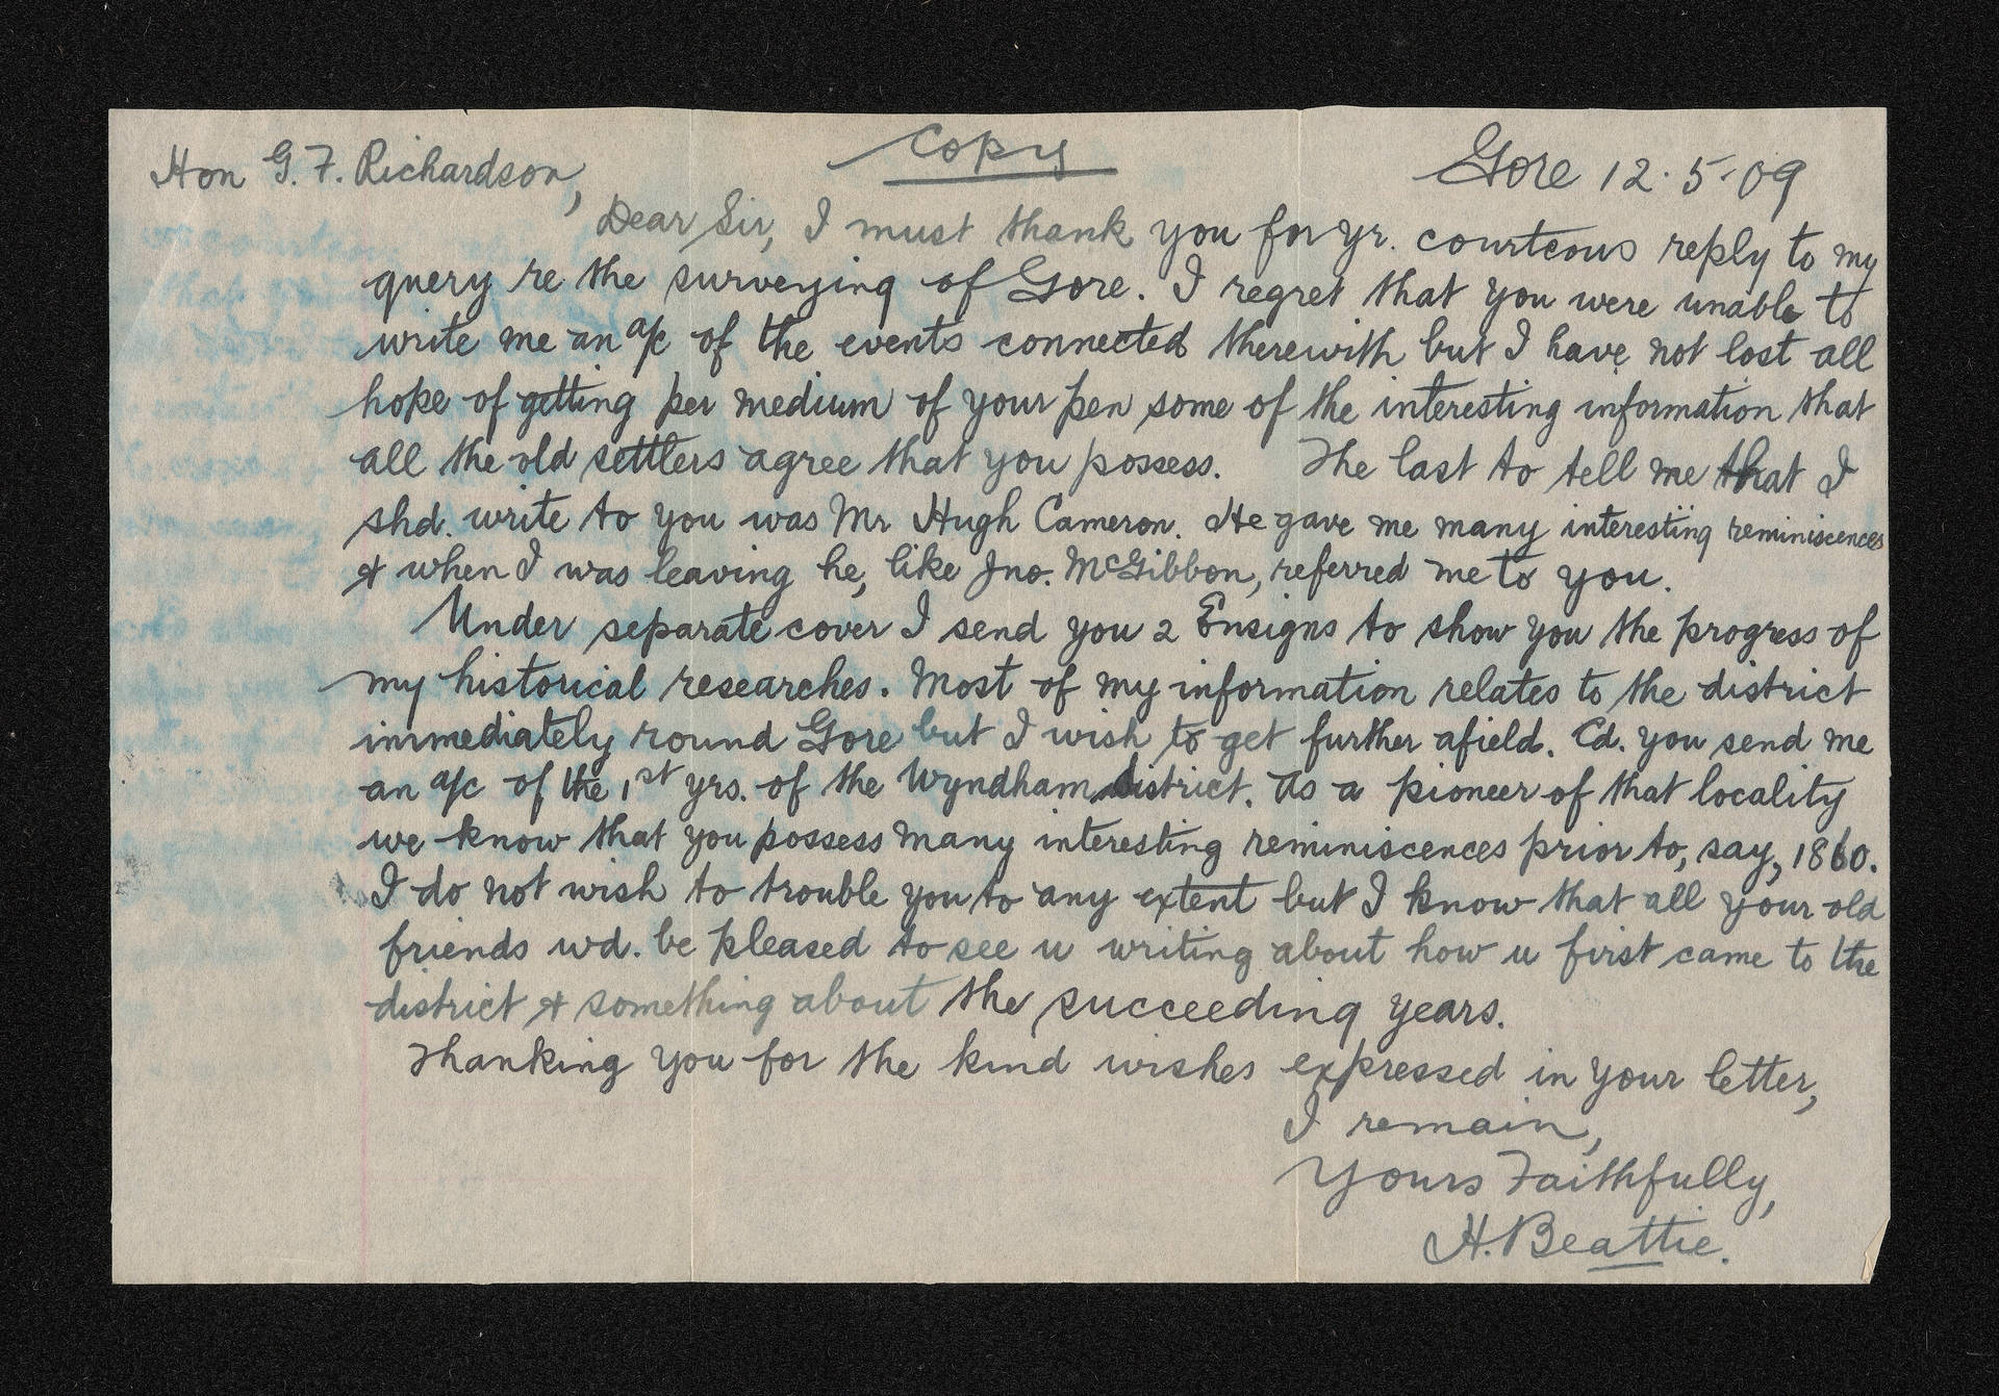 Copy
Hon G. F. Richardson,
Gore 12.5.09
Dear Sir, I must thank you for yr. courteous reply to my
query re the surveying of Gore. I regret that you were unable to
write me an a/c of the events connected therewith but I have not lost all
hope of getting per medium of your pen some of the interesting information that
all the old settlers agree that you possess. The last to tell me that I
shd. write to you was Mr Hugh Cameron. He gave me many interesting reminiscences
& when I was leaving he, like Jno. McGibbon, referred me to you.
Under separate cover I send you 2 Ensigns to show you the progress of
my historical researches. Most of my information relates to the district
immediately round Gore but I wish to get further afield. Cd. you send me
an a/c of the 1st yrs. of the Wyndham district. As a pioneer of that locality
we know that you possess many interesting reminiscences prior to, say, 1860.
I do not wish to trouble you to any extent but I know that all your old
friends wd. be pleased to see u writing about how u first came to the
district & something about the succeeding years.
Thanking you for the kind wishes expressed in your letter,
I remain,
Yours Faithfully,
H. Beattie.